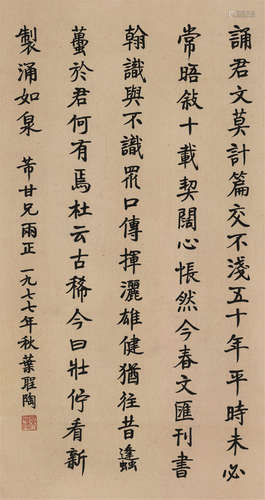 誦君文莫計篇交不淺五十年平時未必
常晤敘十載契闊心悵然今春文匯刊書
翰識與不識眾口傳揮灑雄健猶往昔蓬
蠆於君何有焉杜云古稀今曰壯佇看新
製涌如泉 芾甘兄兩正 一九七七年秋葉聖陶